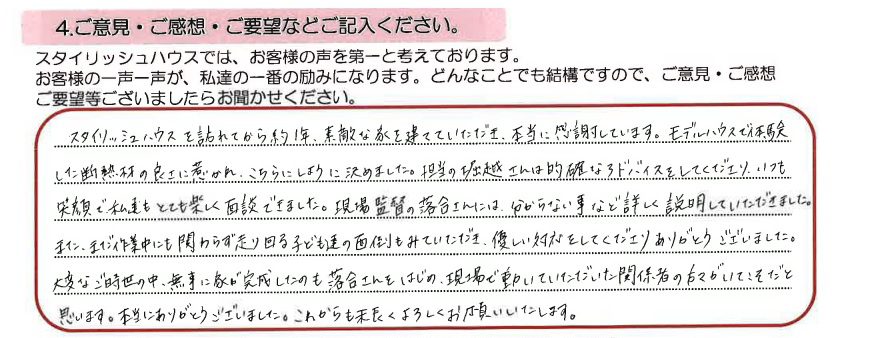 4.ご意見・ご感想・ご要望などご記入ください。
スタイリッシュハウスでは、お客様の声を第一と考えております。
お客様の一声一声が、私達の一番の励みになります。どんなことでも結構ですので、ご意見・ご感想
ご要望等ございましたらお聞かせください。
スタイリッシュハウスを訪れてから約1年、素敵な家を建てていただき、本当に感謝しています。モデルハウスで体験
した断熱材の良さに惹かれ、こちらにしようと決めました。担当の堀越さんは的確なアドバイスをしてくださり、いつも
笑顔で私達もとても楽しく面談できました。現場監督の落合さんには、分からない事など詳しく説明していただきました。
また、まだ作業中にも関わらず走り回る子ども達の面倒もみていただき、優しい対応をしてくださりありがとうございました。
大変なご時世の中、無事に家が完成したのも落合さんをはじめ、現場で動いていただいた関係者の方々がいてこそだと
思います。本当にありがとうございました。これからも末長くよろしくお願いいたします。